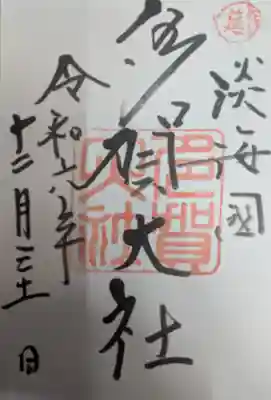 淡海國
多賀大社
令和六年
十二月三十一日
多賀大社